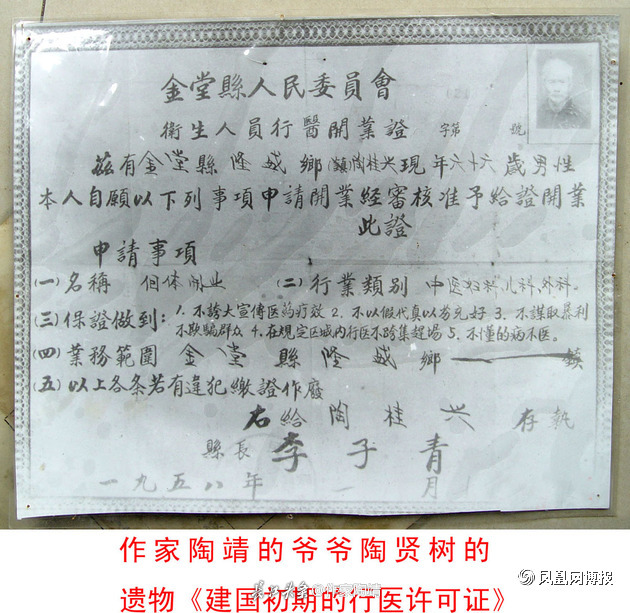 金堂縣人民委員會
衛生人員行醫開業證 字第 號
茲有金堂縣隆盛鄉(鎮)陶桂兴現年六十六歲男性
本人自願以下列事項申請開業經審核准予給證開業
此證
申請事項
(一)名稱 個体開业 (二)行業類别 中医妇科、儿科、外科。
(三)保證做到：1. 不誇大宣傳医药疗效 2. 不以假代真以劣充好 3. 不謀取暴利
不欺騙群众 4. 在規定区域内行医不跨集趕場 5. 不懂的病不医。
(四)業務範圍 金堂縣隆盛鄉 鎮
(五)以上各条若有違犯繳證作廢
右給陶桂兴存執
縣長 李子青
一九五八年一月
作家陶靖的爷爷陶贤树的
@作家陶靖
凤凰网博报
遗物《建国初期的行医许可证》